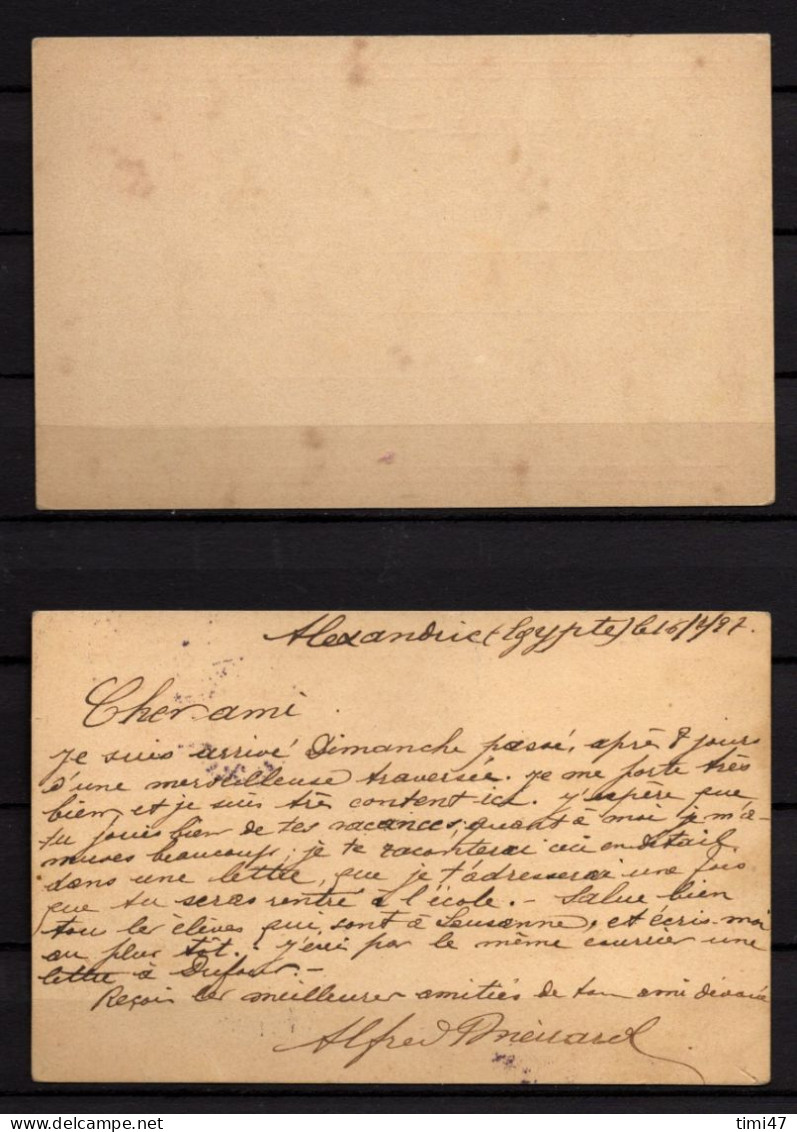 Alexandrie (Egypte) le 15/7/97.
Cher ami.
Je suis arrivé Dimanche passé, après 8 jours
d'une merveilleuse traversée. Je me porte très
bien, et je suis très content ici. J'espère que
tu jouis bien de tes vacances; quant à moi je m'a-
muses beaucoup; je te raconterai ceci en détail
dans une lettre, que je t'adresserai une fois
que tu seras rentré à l'école. – Salue bien
tou les élèves qui sont à Lausanne, et écris-moi
au plus tôt. J'écris par le même courrier une
lettre à Dufour. –
Reçois les meilleures amitiés de ton ami dévoué
Alfred
timi47